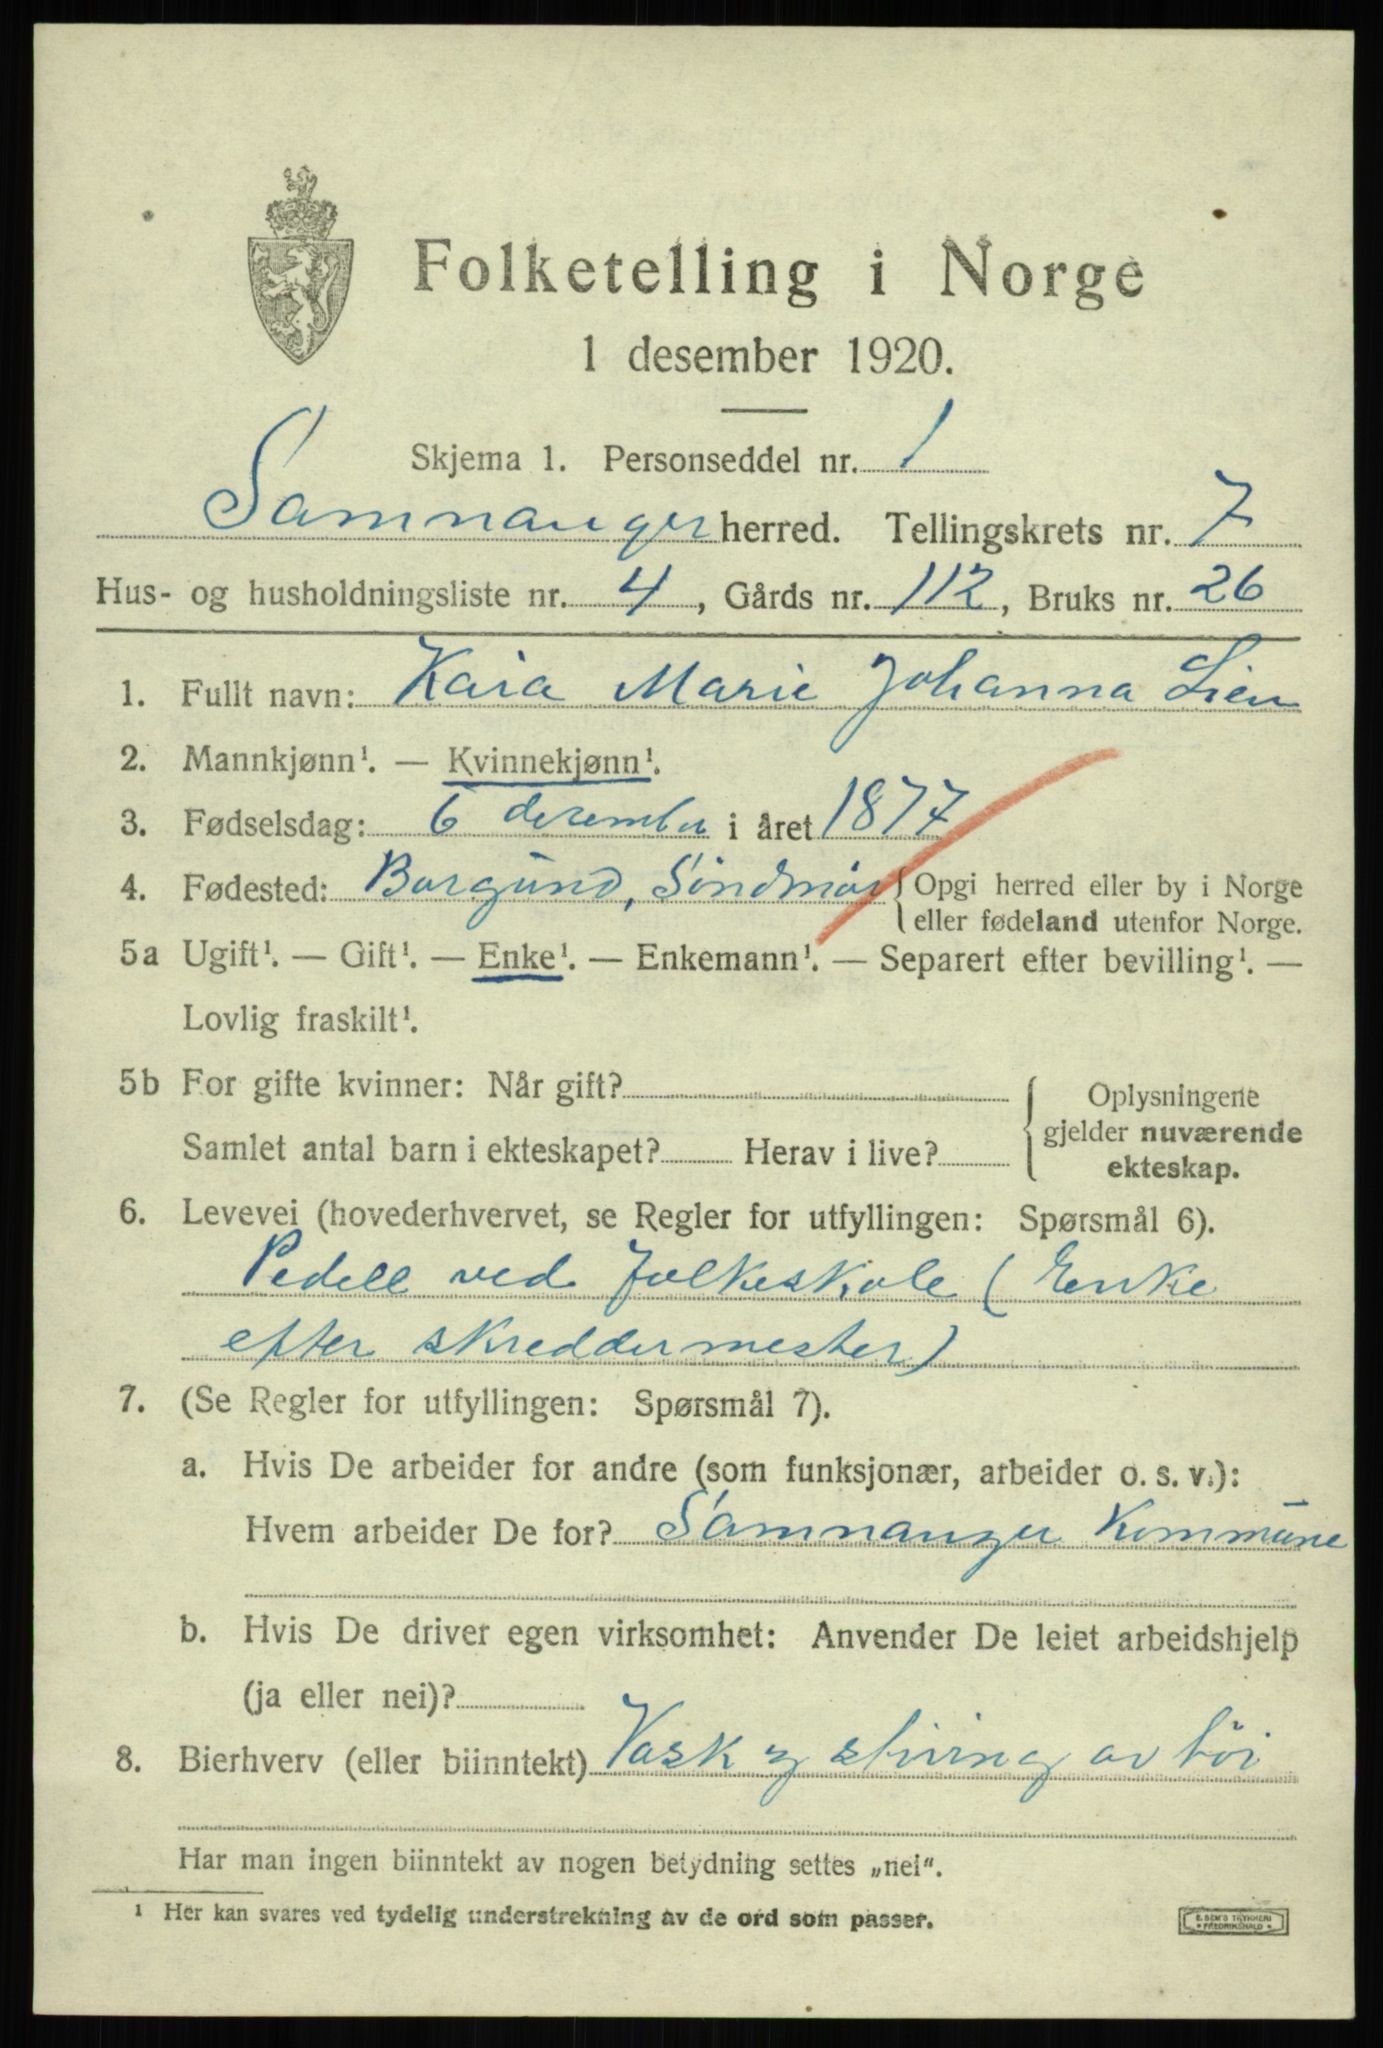 Folketelling i Norge
1 desember 1920.
Skjema 1. Personseddel nr. 1
Samnanger herred. Tellingskrets nr. 7
Hus- og husholdningsliste nr. 4, Gårds nr. 112, Bruks nr. 26
1. Fullt navn: Kaia Marie Johanna Lien
2. Mannkjønn¹. — Kvinnekjønn¹.
3. Fødselsdag: 6 desember i året 1877
4. Fødested: Borgund, Söndmör { Opgi herred eller by i Norge
eller fødeland utenfor Norge.
5a Ugift¹. — Gift¹. — Enke¹. — Enkemann¹. — Separert efter bevilling¹. —
Lovlig fraskilt¹.
5b For gifte kvinner: Når gift?
Samlet antal barn i ekteskapet? Herav i live?
Oplysningene
gjelder nuværende
ekteskap.
6. Levevei (hovederhvervet, se Regler for utfyllingen: Spørsmål 6).
Pedell ved folkeskole (Enke
efter skreddermester)
7. (Se Regler for utfyllingen: Spørsmål 7).
a. Hvis De arbeider for andre (som funksjonær, arbeider o. s. v.):
Hvem arbeider De for? Samnanger Kommune
b. Hvis De driver egen virksomhet: Anvender De leiet arbeidshjelp
(ja eller nei)?
8. Bierhverv (eller biinntekt) Vask og stiving av töi
Har man ingen biinntekt av nogen betydning settes „nei".
¹ Her kan svares ved tydelig understrekning av de ord som passer.
E. SEM'S TRYKKERI
• FREDRIKSHALD •